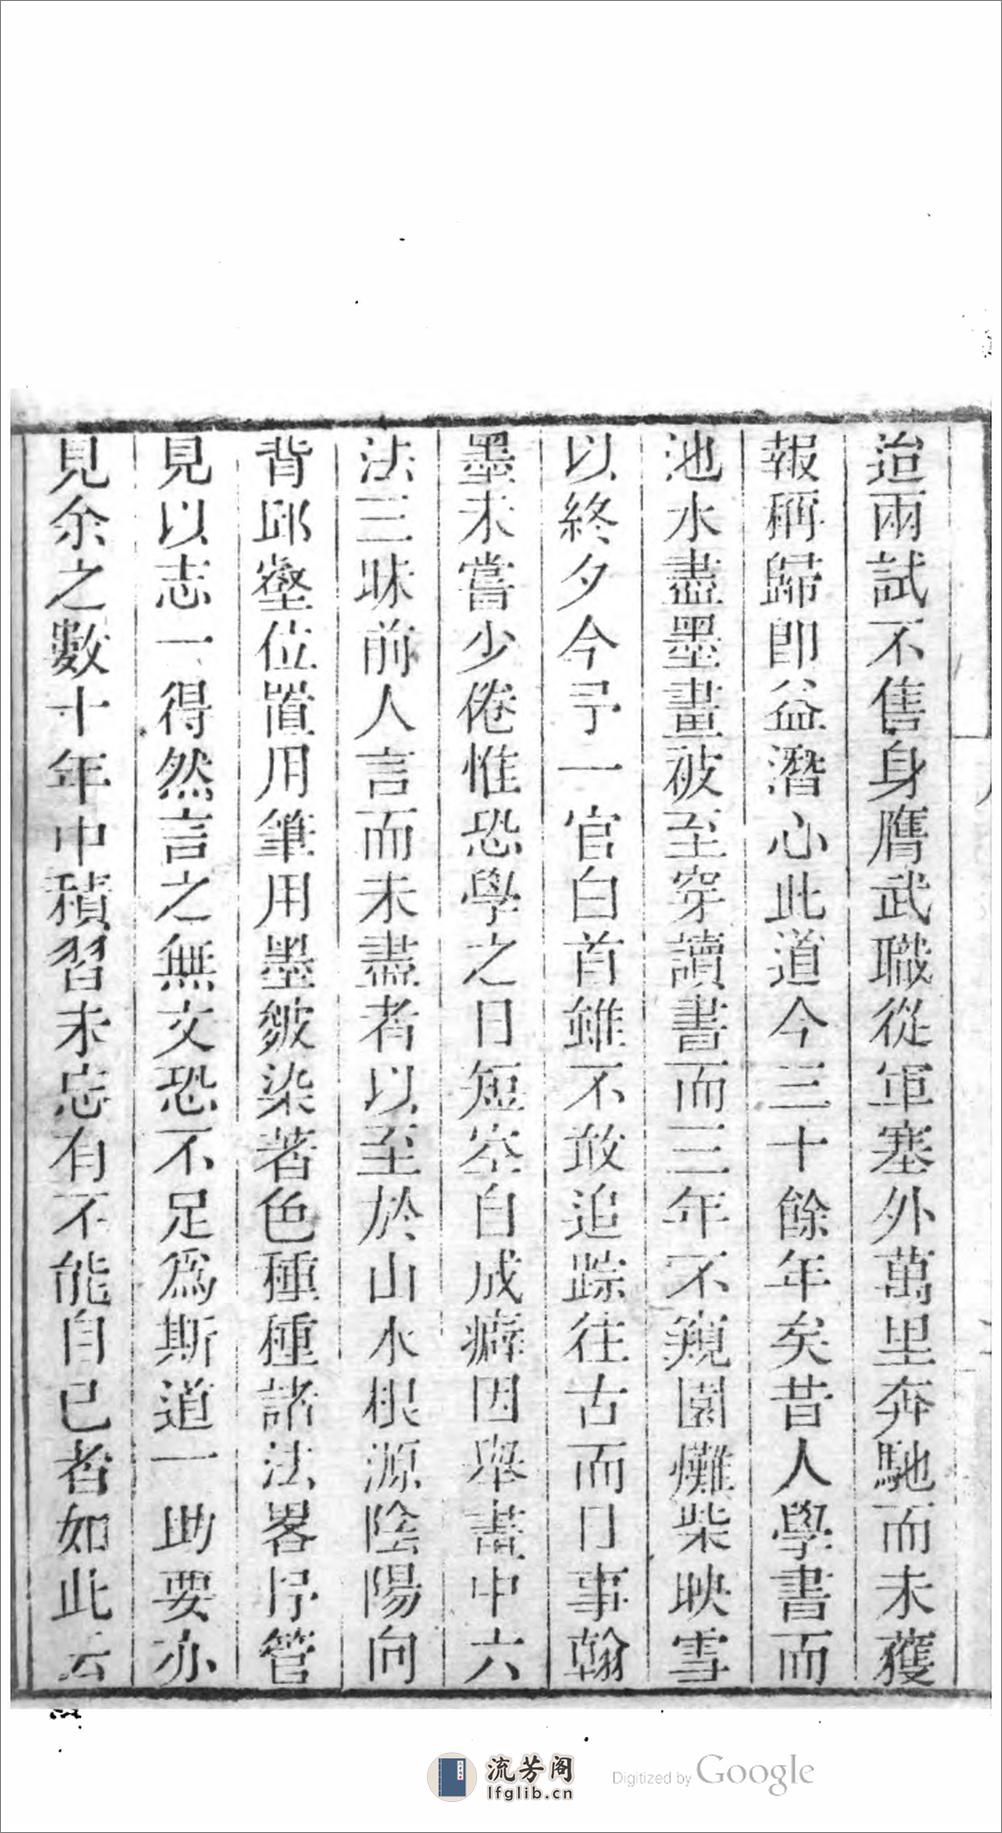 迨兩試不售身膺武職從軍塞外萬里奔馳而未獲
報稱歸即益潛心此道今三十餘年矣昔人學書而
池水盡墨畫被至穿讀書而三年不窺園爇柴映雪
以終夕今予一官白首雖不敢追踪往古而日事翰
墨未嘗少倦惟恐學之日短空自成癖因舉畫中六
法三昧前人言而未盡者以至於山水根源陰陽向
背邱壑位置用筆用墨皴染著色種種諸法畧抒管
見以志一得然言之無文恐不足爲斯道一助要亦
見余之數十年中積習未忘有不能自已者如此云
流芳阁
lfglib.cn
Digitized by Google